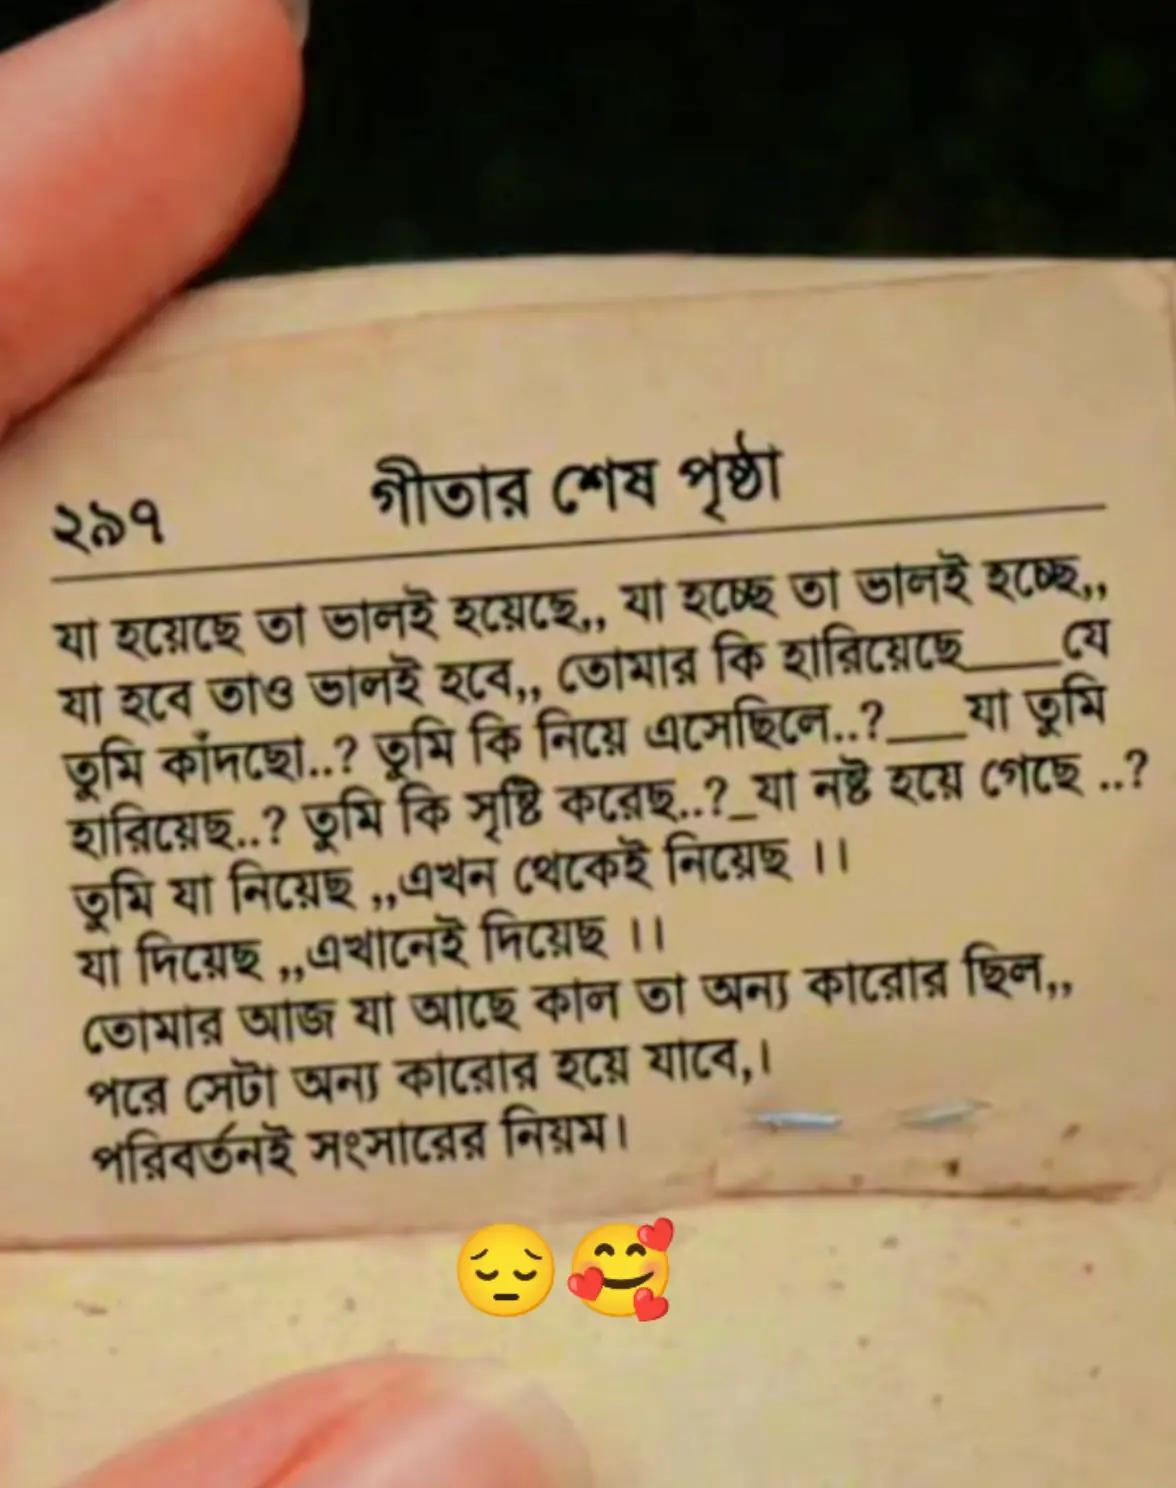 ২৯৭ গীতার শেষ পৃষ্ঠা
যা হয়েছে তা ভালই হয়েছে,, যা হচ্ছে তা ভালই হচ্ছে,,
যা হবে তাও ভালই হবে,, তোমার কি হারিয়েছে____যে
তুমি কাঁদছো..? তুমি কি নিয়ে এসেছিলে..?___যা তুমি
হারিয়েছ..? তুমি কি সৃষ্টি করেছ..?_যা নষ্ট হয়ে গেছে ..?
তুমি যা নিয়েছ ,,এখন থেকেই নিয়েছ ।।
যা দিয়েছ ,,এখানেই দিয়েছ ।।
তোমার আজ যা আছে কাল তা অন্য কারোর ছিল,,
পরে সেটা অন্য কারোর হয়ে যাবে,।
পরিবর্তনই সংসারের নিয়ম।
😔🥰